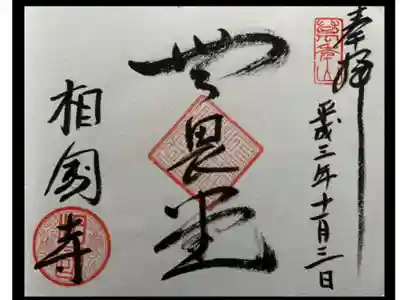 奉拝
平成三年十一月三日
無畏堂
相国寺
萬年山